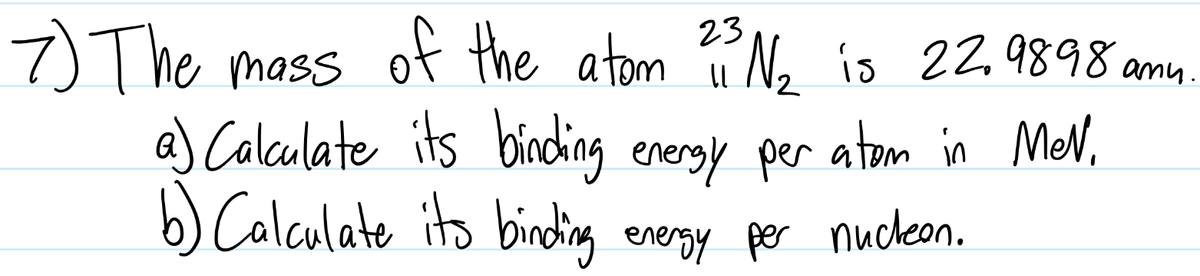 7) The mass of the atom ²³₁₁N₂ is 22.9898 amu.
a) Calculate its binding energy per atom in MeV.
b) Calculate its binding energy per nucleon.